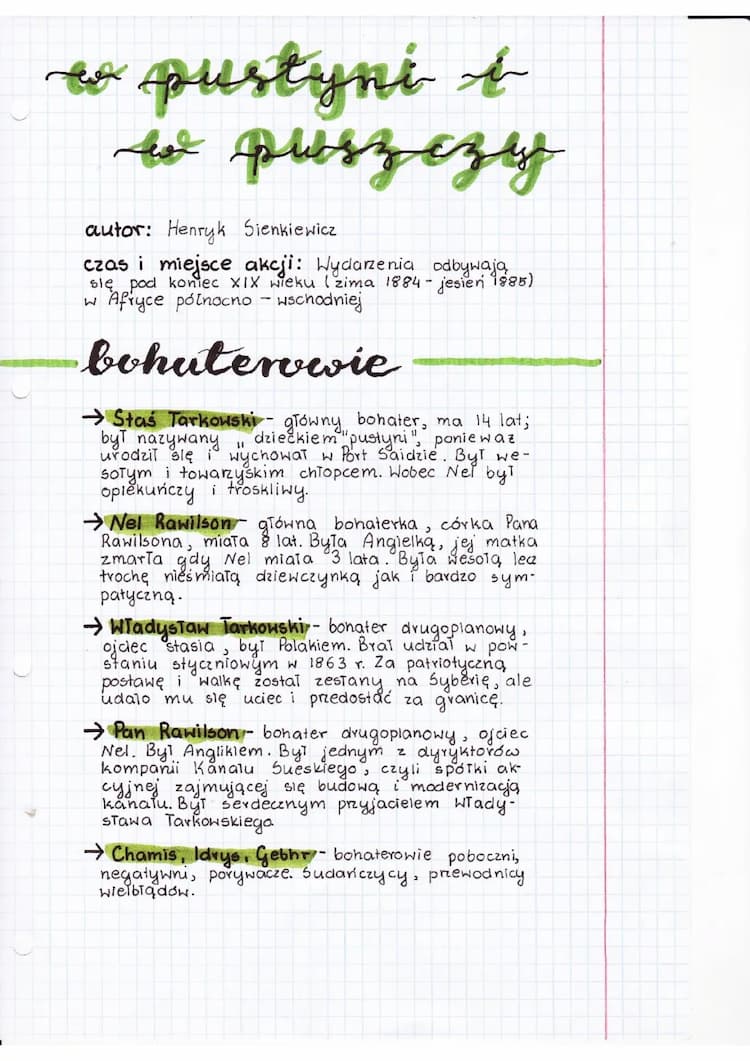 w pustyni i
w puszczy
autor: Henryk Sienkiewicz
czas i miejsce akcji: Wydarzenia odbywają
się pod koniec XIX wieku (zima 1884 - jesień 1885)
w Afryce północno - wschodniej
bohaterowie
→ Staś Tarkowski - główny bohater, ma 14 lat;
był nazywany „dzieckiem "pustyni", ponieważ
urodził się i wychował w Port Saidzie. Był we-
sołym i towarzyskim chłopcem. Wobec Nel był
opiekuńczy i troskliwy.
→ Nel Rawilson - główna bohaterka, córka Pana
Rawilsona, miała 8 lat. Była Angielką, jej matka
zmarła gdy Nel miała 3 lata. Była wesołą lecz
trochę nieśmiałą dziewczynką jak i bardzo sym-
patyczną.
→ Władysław Tarkowski - bohater drugoplanowy,
ojciec Stasia, był Polakiem. Brał udział w pow-
staniu styczniowym w 1863 r. Za patriotyczną
postawę i walkę został zesłany na Syberię, ale
udało mu się uciec i przedostać za granicę.
→ Pan Rawilson - bohater drugoplanowy, ojciec
Nel. Był Anglikiem. Był jednym z dyryktorów
kompanii Kanału Sueskiego, czyli spółki ak-
cyjnej zajmującej się budową i modernizacją
kanału. Był serdecznym przyjacielem Włady-
sława Tarkowskiego
→ Chamis, Idrys, Gebhr - bohaterowie poboczni,
negatywni, porywacze. Sudańczycy, przewodnicy
wielbłądów.